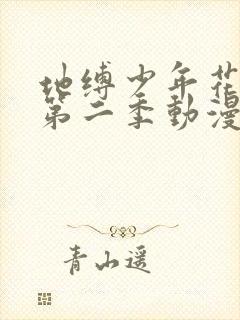 地缚少年花
第二季動漫
青山遥